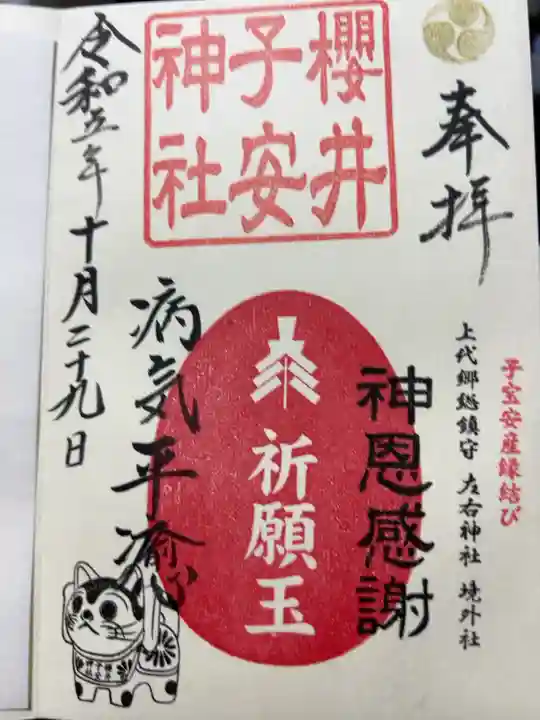 奉拝
子宝安産縁結び
上代郷総鎮守 左右神社 境外社
櫻井
子安
神社
神恩感謝
祈願玉
病気平癒
令和五年十月二十九日